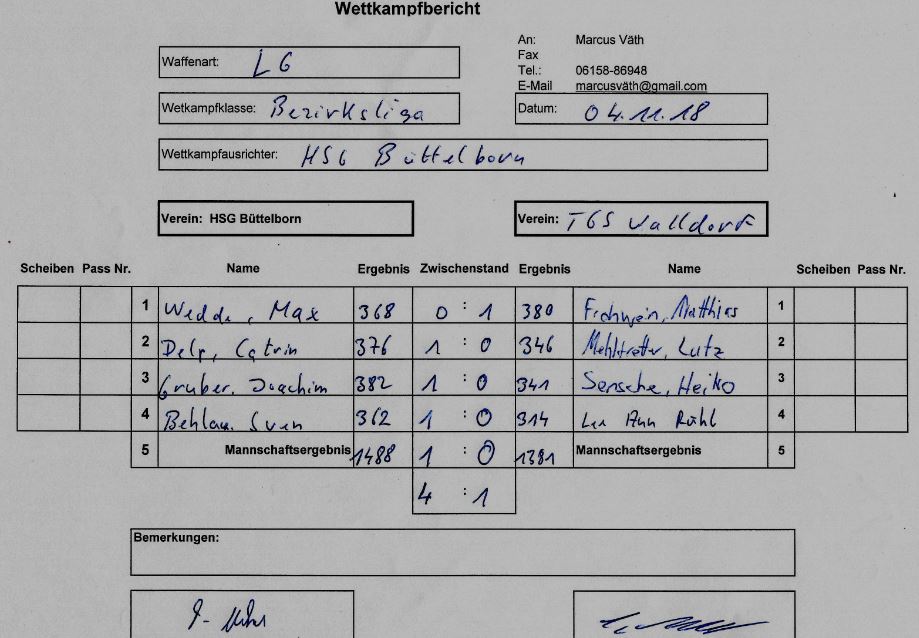 Wettkampfbericht
An: Marcus Väth
Fax
Waffenart: LG
Tel.: 06158-86948
E-Mail marcusväth@gmail.com
Wetkampfklasse: Bezirksliga Datum: 04.11.18
Wettkampfausrichter: HSG Büttelborn
Verein: HSG Büttelborn Verein: TGS Walldorf
Scheiben Pass Nr. Name Ergebnis Zwischenstand Ergebnis Name Scheiben Pass Nr.
1 Wedde, Max 368 0 : 1 380 Frohwein, Matthias 1
2 Delp, Catrin 376 1 : 0 346 Lutz 2
3 Gruber, Joachim 382 1 : 0 341 Sensche, Heiko 3
4 Behlau, Sven 362 1 : 0 314 Ann Rühl 4
5 Mannschaftsergebnis 1488 1 : 0 1381 Mannschaftsergebnis 5
4 : 1
Bemerkungen: